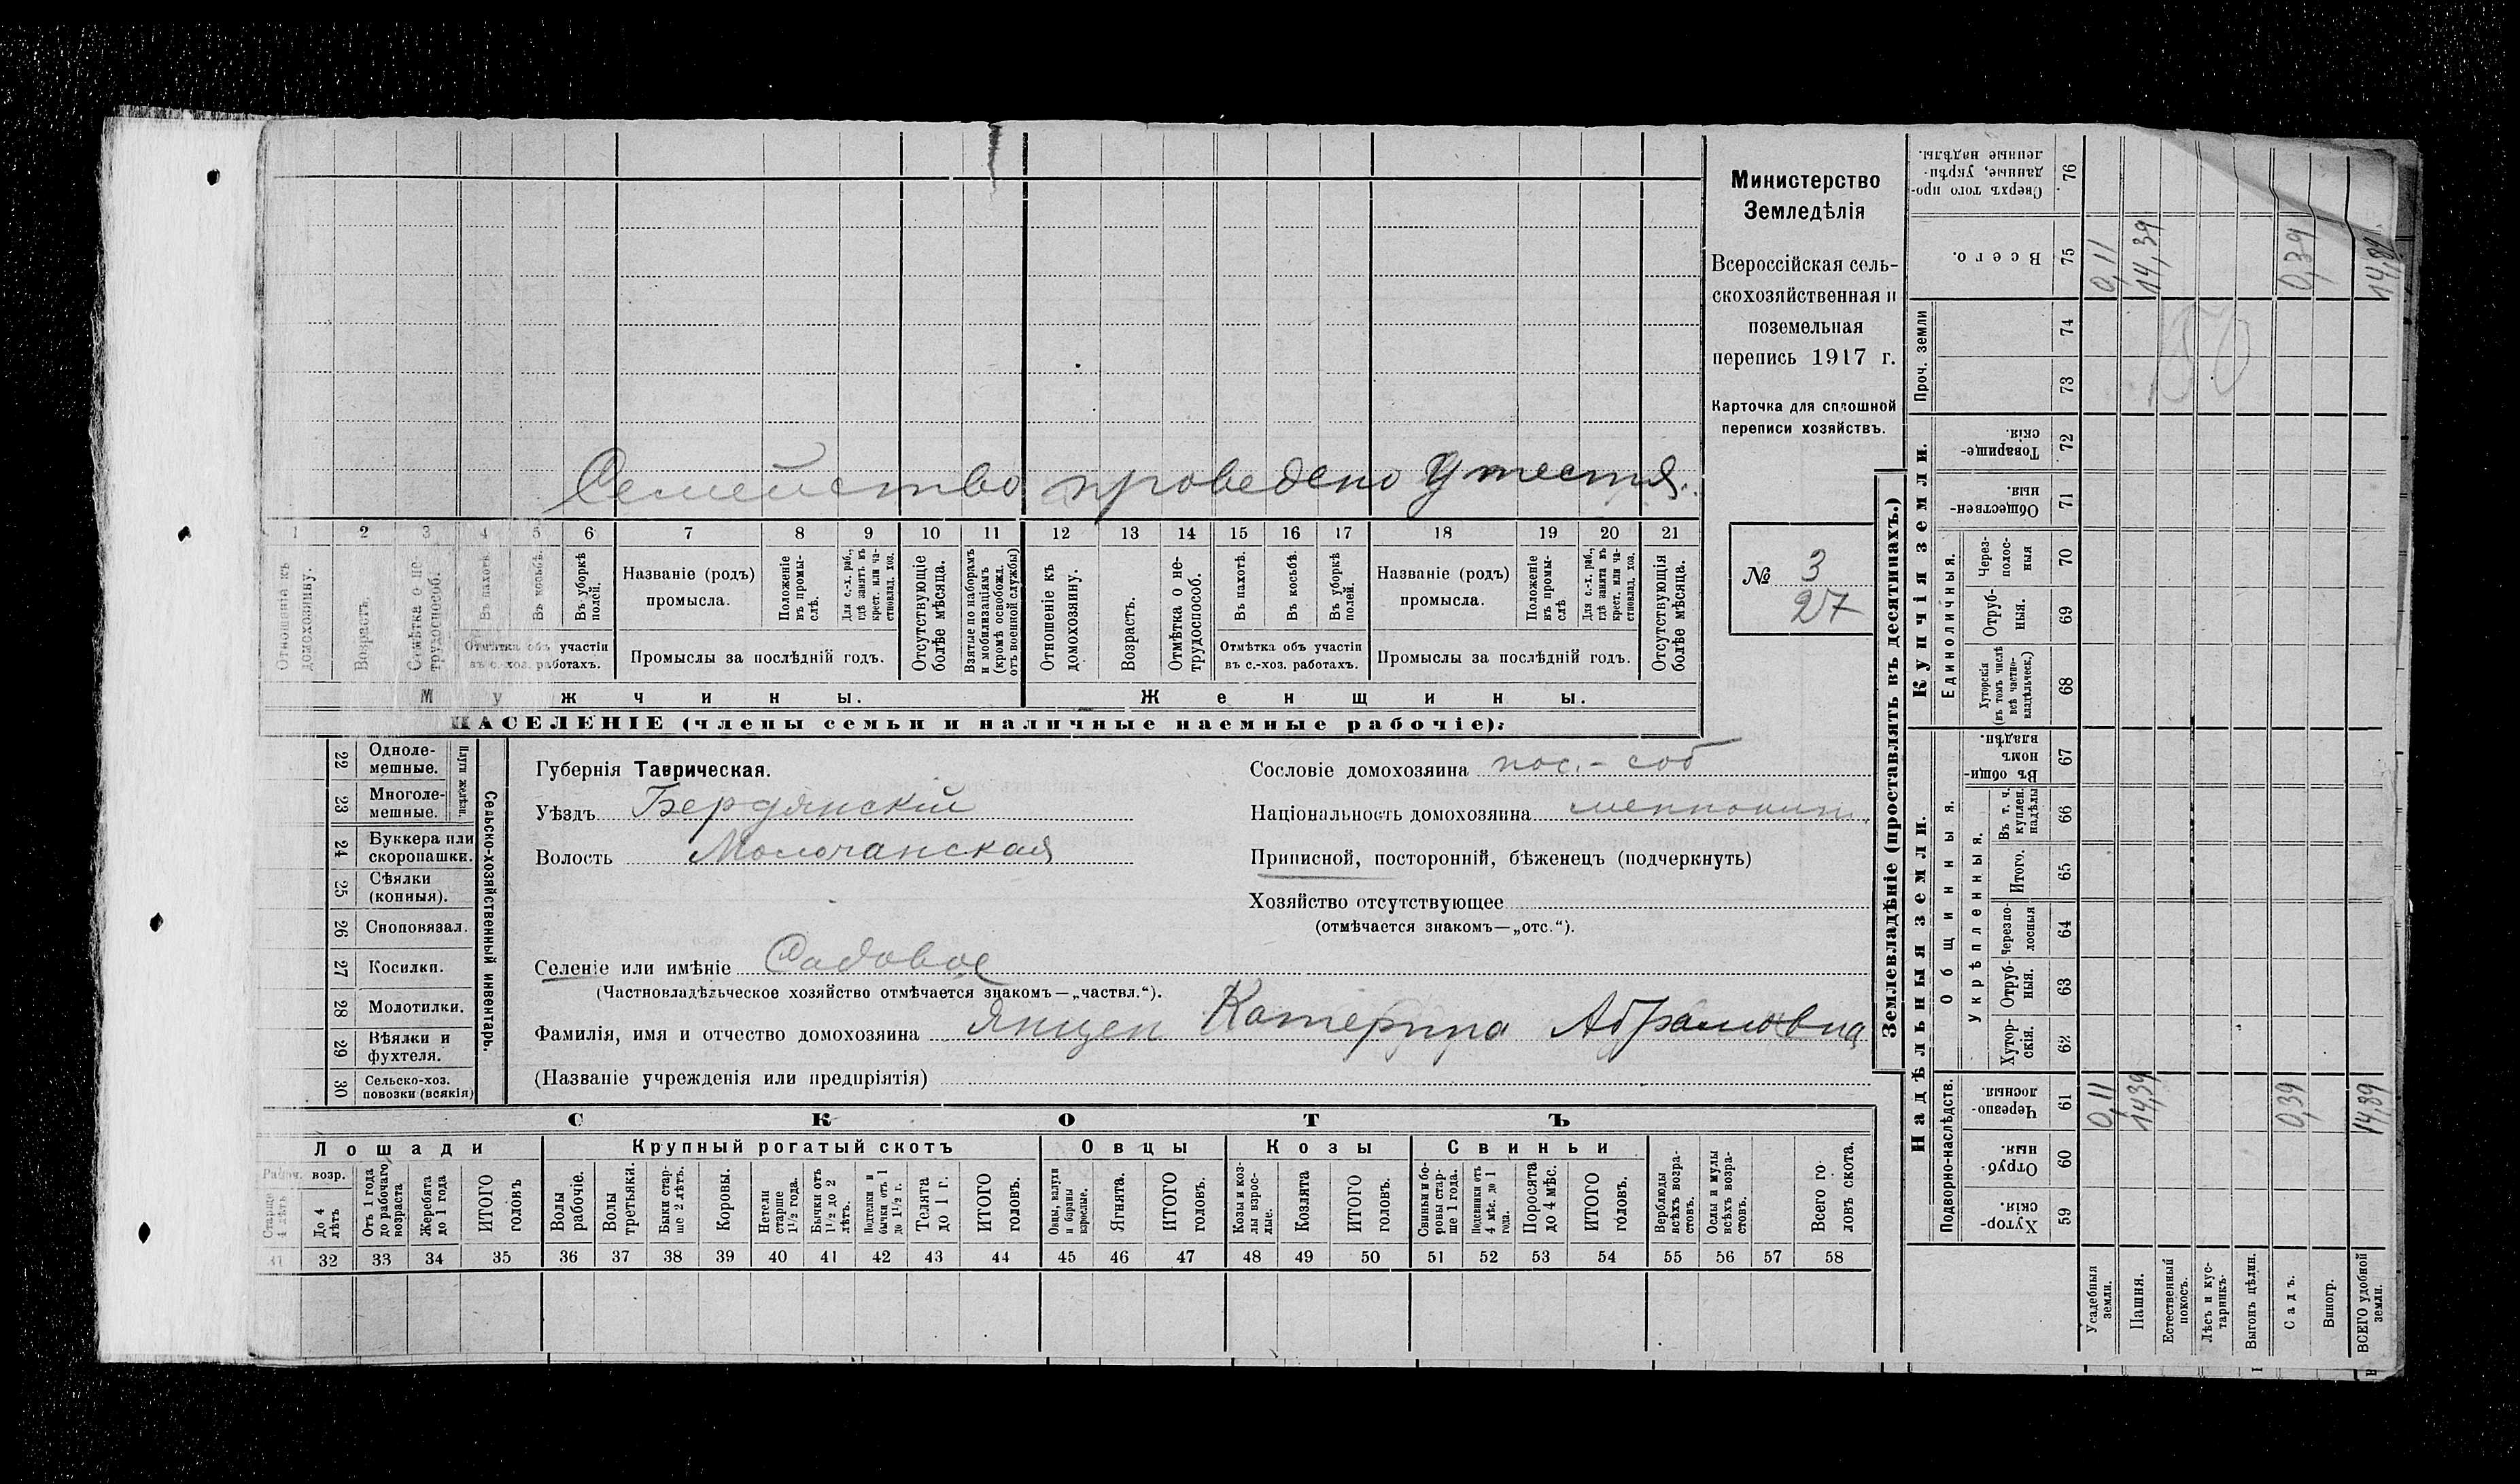 Семейство проведено у тестя.
1 2 3 4 5 6 7 8 9 10 11 12 13 14 15 16 17 18 19 20 21
Отношенія къ домохозяину.
Возрастъ.
Отмѣтка о не-
трудоспособ.
Въ пахотѣ.
Въ косьбѣ.
Въ уборкѣ
полей.
Отмѣтка объ участіи
въ с.-хоз. работахъ.
Названіе (родъ)
промысла.
Положеніе
въ промы-
слѣ.
Для с.-х. раб.,
гдѣ занятъ въ
крест. или ча-
стновлад. хоз.
Промыслы за послѣдній годъ.
Отсутствующіе
болѣе мѣсяца.
Взятые по наборамъ
и мобилизаціямъ
(кромѣ освобожд.
отъ военной службы)
Отношеніе къ
домохозяину.
Возрастъ.
Отмѣтка о не-
трудоспособ.
Въ пахотѣ.
Въ косьбѣ.
Въ уборкѣ
полей.
Отмѣтка объ участіи
въ с.-хоз. работахъ.
Названіе (родъ)
промысла.
Положеніе
въ промы-
слѣ
Для с.-х. раб.,
гдѣ занята въ
крест. или ча-
стновлад. хоз.
Промыслы за послѣдній годъ.
Отсутствующія
болѣе мѣсяца.
Мужчины.
Женщины.
НАСЕЛЕНІЕ (члены семьи и наличные наемные рабочіе).
Министерство
Земледѣлія
Всероссійская сель-
скохозяйственная и
поземельная
перепись 1917 г.
Карточка для сплошной
переписи хозяйствъ.
№ 3
27
22 Одноле-
мешные.
23 Многоле-
мешные.
Плуги желѣзн.
24 Буккера или
скоропашки.
25 Сѣялки
(конныя).
26 Сноповязал.
27 Косилки.
28 Молотилки.
29 Вѣялки и
фухтеля.
30 Сельско-хоз.
повозки (всякія)
Сельско-хозяйственный инвентарь.
Губернія Таврическая.
Уѣздъ Бердянскій
Волость Молочанская
Селеніе или имѣніе Садовое
(Частновладѣльческое хозяйство отмѣчается знакомъ—„частвл.“).
Фамилія, имя и отчество домохозяина Янцен Катерина Абрамовна
(Названіе учрежденія или предпріятія)
Сословіе домохозяина пос.-соб
Національность домохозяина меннонит.
Приписной, посторонній, бѣженецъ (подчеркнуть)
Хозяйство отсутствующее
(отмѣчается знакомъ—„отс.“).
СКОТЪ
Лошади
Крупный рогатый скотъ
Овцы
Козы
Свиньи
Рабоч. возр.
Старше
4 лѣтъ
До 4
лѣтъ
Отъ 1 года
до рабочаго
возраста
Жеребята
до 1 года
ИТОГО
головъ
Волы
рабочіе.
Волы
третьяки.
Быки стар-
ше 2 лѣтъ.
Коровы.
Нетели
старше
1½ года.
Бычки отъ
1½ до 2
лѣтъ.
Подтелки и
бычки отъ 1
до 1½ г.
Телята
до 1 г.
ИТОГО
головъ.
Овцы, валухи
и бараны
взрослые.
Ягнята.
ИТОГО
головъ.
Козы и коз-
лы взрос-
лые.
Козлята
ИТОГО
головъ.
Свиньи и бо-
ровы стар-
ше 1 года.
Подсвинки отъ
4 мѣс. до 1
года.
Поросята
до 4 мѣс.
ИТОГО
головъ.
Верблюды
всѣхъ возра-
стовъ.
Ослы и мулы
всѣхъ возра-
стовъ.
Всего го-
ловъ скота.
31 32 33 34 35 36 37 38 39 40 41 42 43 44 45 46 47 48 49 50 51 52 53 54 55 56 57 58
Землевладѣніе (проставлять въ десятинахъ.)
Надѣльныя земли.
Купчія земли.
Подворно-наслѣдств.
Общинныя.
Укрѣпленныя.
Единоличныя.
Проч. земли
Хутор-
скія.
59
Отруб-
ныя.
60
Черезпо-
лосныя.
61
Хутор-
скія.
62
Отруб-
ныя.
63
Черезпо-
лосныя
64
Итого.
65
Въ т. ч.
куплен.
надѣлы
66
Въ общин-
номъ
владѣн.
67
Хуторскія
(въ томъ числѣ
всѣ частно-
владѣльческ.)
68
Отруб-
ныя.
69
Через-
полос-
ныя
70
Обществен-
ныя.
71
Товарище-
скія.
72
73
74
Всего.
75
Сверхъ того про-
данные, укрѣп-
ленные надѣлы.
76
Усадебныя
земли.
0,11 0,11
Пашня.
14,39 14,39
Естественный
покосъ.
Лѣсъ и кус-
тарникъ.
Выгонъ цѣлин.
Садъ.
0,39 0,39
Виногр.
ВСЕГО удобной
земли.
14,89 14,89